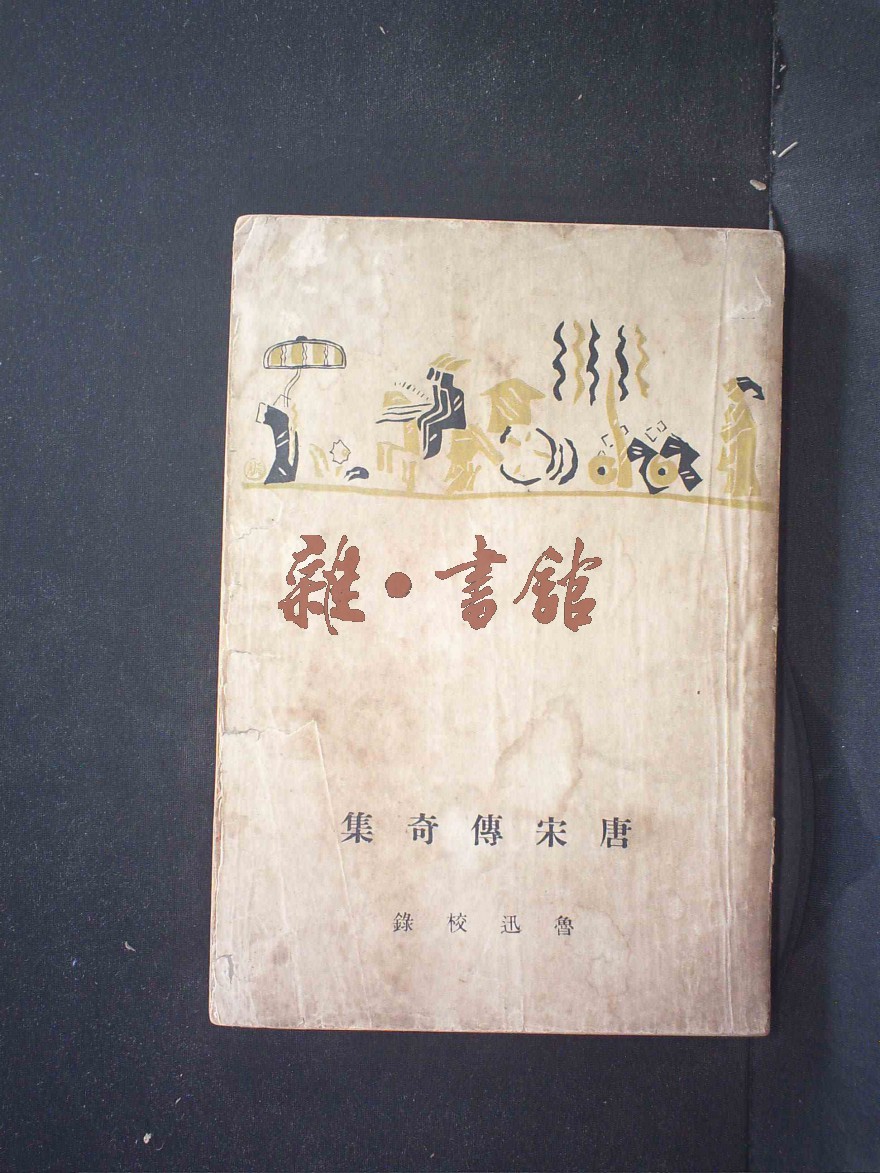 雜·書館
唐宋傳奇集
魯迅校錄